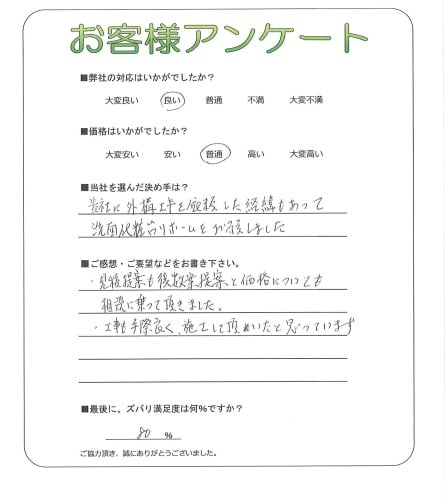 お客様アンケート
■弊社の対応はいかがでしたか？
大変良い 良い 普通 不満 大変不満
■価格はいかがでしたか？
大変安い 安い 普通 高い 大変高い
■当社を選んだ決め手は？
貴社に外構工事を依頼した経緯もあって
洗面化粧台リホームをお願しました
■ご感想・ご要望などをお書き下さい。
・見積提案も複数案提案、と価格についても
相談に乗って頂きました。
・工事も手際良く、施工して頂めいたと思っています
■最後に、ズバリ満足度は何%ですか？
80 %
ご協力頂き、誠にありがとうございました。